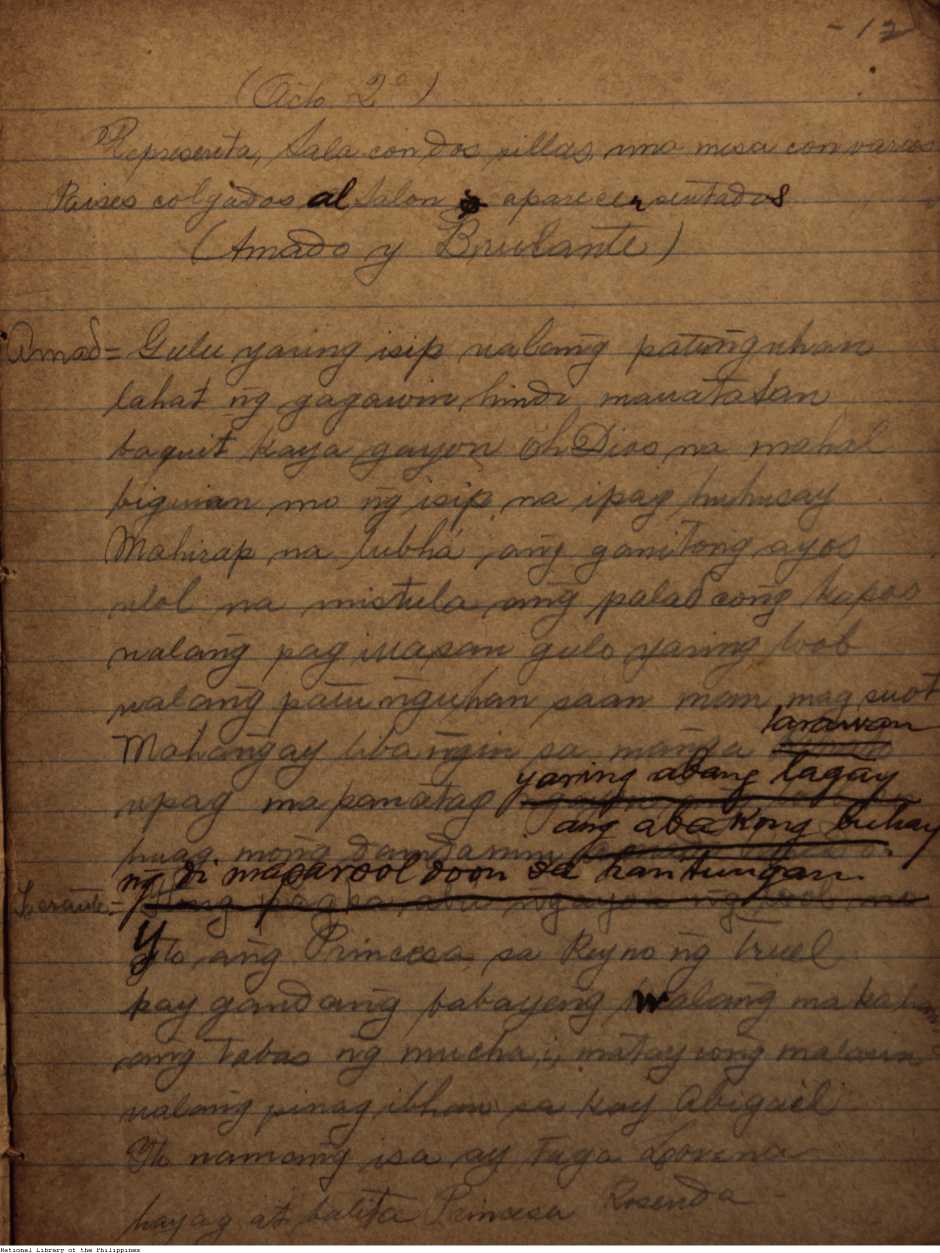 - 12
(Acto 2º)
Representa, Sala con dos sillas, una mesa con varios
Paises colgados al Salon aparecen sentados
(Amado y Brulante)
Amad= Gulu yaring isip ualang patunguhan
lahat ng gagawin hindi mauatasan
baquit kaya gayon Oh Dios na mahal
biguian mo ng isip na ipag huhusay
Mahirap na lubha ang ganitong ayos
ulol na mistula ang palad cong kapos
ualang pag iuasan gulo yaring loob
ualang patunguhan saan man mag suot
Mahangay libangin sa manga larawan
upag mapanatag yaring abang lagay
huag mong damdamin ang aba kong buhay
ng di maparool doon sa hantungan
Yto ang Princesa sa Reyno ng Truel
kay gandang babayeng walang
ang tabas ng mucha, matay mong malasin
ualang pinag ibhan sa kay Abigael
Yto namang isa ay taga Lorena
hayag at balita Princesa Rosenda
National Library of the Philippines